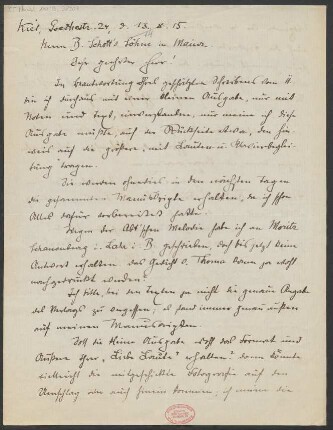 Kiel, Goethestr. 24, d. 13. X 15.
Herrn B. Schott's Söhne in Mainz.
Sehr geehrter Herr!
In Beantwortung Ihres geschätzten Schreibens vom 11
bin ich durchaus mit einer kleinen Ausgabe, nur mit
Noten und Text, einverstanden, nur meine ich diese
Ausgabe müßte, auf der Rückseite etwa, den Hin-
weis auf die größere, mit Lauten u. Klavierbeglei-
tung tragen.
Sie werden ohnedies in den nächsten Tagen
die gesammten Manuskripte erhalten, da ich schon
Alles dafür vorbereitet hatte.
Wegen der Abt'schen Melodie habe ich an Moritz
Schauenburg i. Lahr i. B. geschrieben, doch bis jetzt keine
Antwort erhalten das Gedicht v. Thoma kann ja wohl
nachgedruckt werden?
Ich bitte, bei den Texten ja nicht die genaue Angabe
des Verlags zu vergessen, es stand immer genau außen
auf meinen Manuskripten.
Soll die kleine Ausgabe auch das Format und
Äußere der "Liebe Laute" erhalten? dann könnte
vielleicht die mitgeschickte Fotografie auf den
Umschlag oder auch hinein kommen, ich meine die